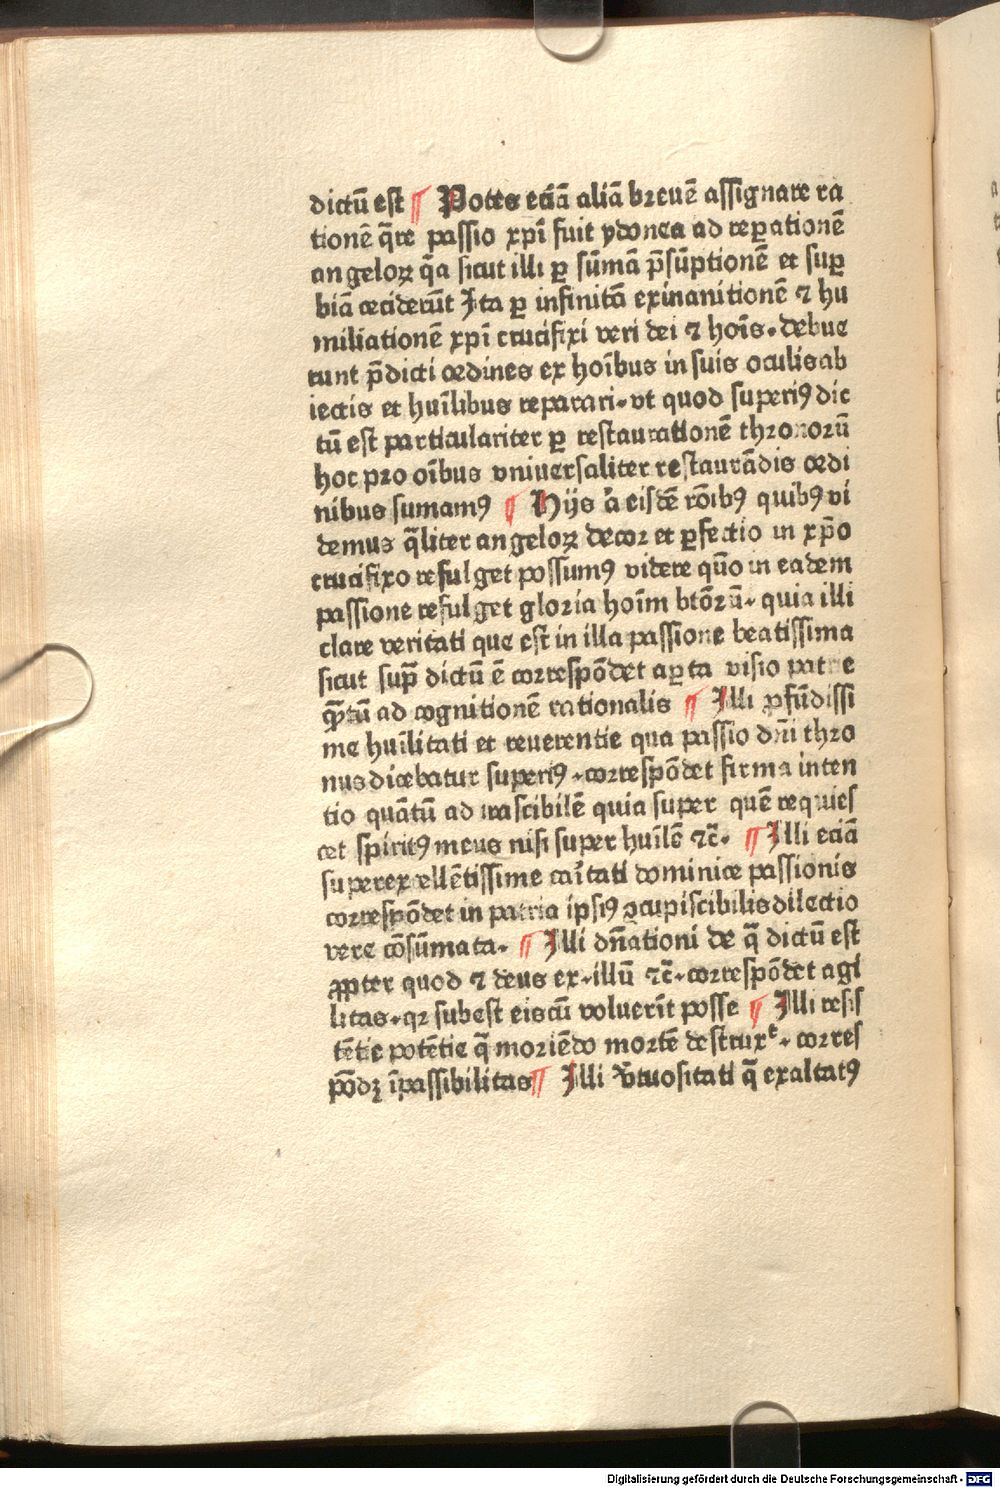 dictū est ¶ Potes eciā aliā breuē assignare ra
tionē q̄re passio xp̄i fuit ydonea ad reꝑationē
angeloꝝ q̄a sicut illi ꝑ sūmā p̄sūptionē et suꝑ
biā ceciderūt Ita ꝑ infinitā exinanitionē ⁊ hu
miliationē xp̄i crucifixi veri dei ⁊ hoīs. debue
runt p̄dicti ordines ex hoībus in suis oculis ab
iectis et huīlibus reparari. vt quod superiꝰ dic
tū est particulariter ꝑ restaurationē thronorū
hoc pro oībus vniuersaliter restaurādis ordi
nibus sumamꝰ ¶ Hijs a̅ eisdē rōıbꝰ quibꝰ vi
demus q̄liter angeloꝝ decor et ꝑfectio in xp̄o
crucifixo refulget possumꝰ videre quō in eadem
passione refulget gloria hoīm btōrū. quia illi
clare veritati que est in illa passione beatissima
sicut sup̄ dictū ē correspōdet aꝑta visio patrie
qꝫtū ad cognitionē rationalis ¶ Illi ꝓfūdissi
me huīlitati et reuerentie qua passio dn̄i thro
nus dicebatur superiꝰ. correspōdet firma inten
tio quātū ad irascibilē quia super quē requies
cet spiritꝰ meus nisi super huīlē ⁊c̄. ¶ Illi eciā
superexcellētissime caītati dominice passionis
correspōdet in patria ipsiꝰ ꝯcupiscibilis dilectio
vere cōsūmata. ¶ Illi dn̄ationi de q̄ dictū est
ꝓpter quod ⁊ deus ex. illū ⁊c̄. correspōdet agi
litas. qꝛ subest eis cū voluerīt posse ¶ Illi resis
tētie potētie q̄ moriēdo mortē destruxᵗ. corres
pōdꝫ īpassibilitas ¶ Illi v̓tuositati q̄ exaltatꝰ
Digitalisierung gefördert durch die Deutsche Forschungsgemeinschaft - DFG